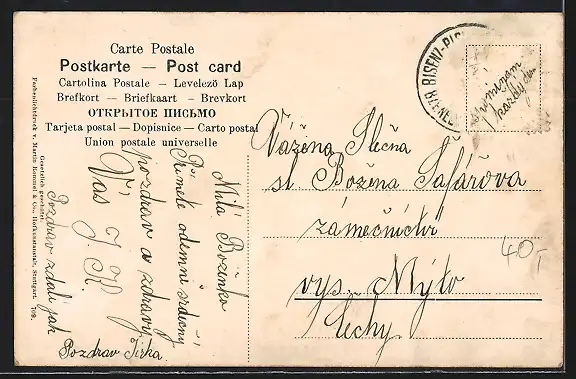 Carte Postale
Postkarte — Post card
Cartolina Postale — Levelező Lap
Brefkort — Briefkaart — Brevkort
ОТКРЫТОЕ ПИСЬМО
Tarjeta postal — Dopisnice — Carto postal
Union postale universelle
Farbenlichtdruck v. Martin Rommel & Co., Hofkunstanstalt, Stuttgart. 709.
Gesetzlich geschützt.
Milá Boženko
Přiměte odemni srdečný
pozdrav a zdraví
Vás J. K.
Pozdrav zdali jak
Pozdrav Jirka.
BISENZ-PIS
vzpomínám
každý den
Vážena Slečna
sl. Božena Šafářova
zámečnictví
vys. Mýto
Čechy
40-